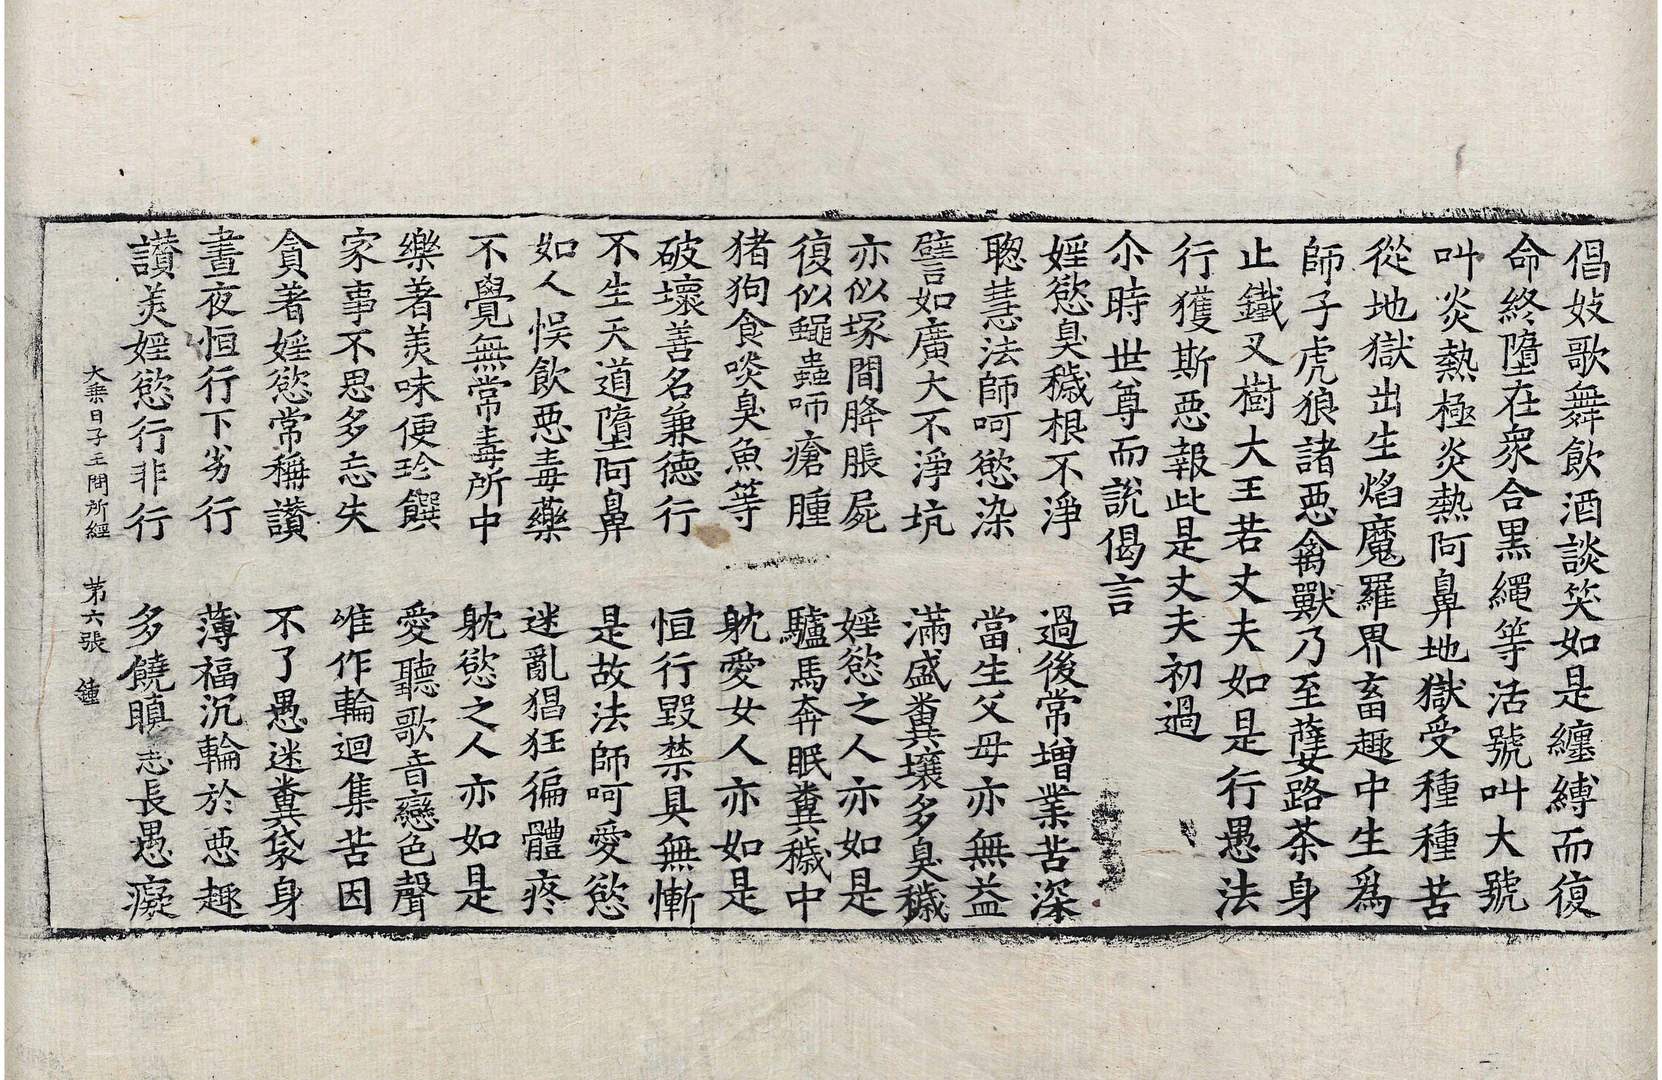 倡妓歌舞飲酒談笑如是纏縛而復
命終墮在衆合黒繩等活號叫大號
叫炎熱極炎熱阿鼻地獄受種種苦
從地獄出生焰魔羅界畜趣中生爲
師子虎狼諸惡禽獸乃至孽路荼身
止鐵叉樹大王若丈夫如是行愚法
行獲斯惡報此是丈夫初過
尒時世尊而說偈言
婬慾臭穢根不淨　過後常增業苦深
聦慧法師呵慾染　當生父母亦無益
譬如廣大不淨坑　滿盛糞壤多臭穢
亦似塚間胮脹屍　婬慾之人亦如是
復似蠅蟲咂瘡腫　驢馬奔眠糞穢中
猪狗食啖臭魚等　躭愛女人亦如是
破壞善名兼德行　恒行毀禁具無慚
不生天道墮阿鼻　是故法師呵愛慾
如人悮飲惡毒藥　迷亂猖狂徧體疼
不覺無常毒所中　躭慾之人亦如是
樂著美味便珍饌　愛聽歌音戀色聲
家事不思多忘失　唯作輪迴集苦因
貪著婬慾常稱讃　不了愚迷糞袋身
晝夜恒行下劣行　薄福沉輪於惡趣
讃美婬慾行非行　多饒瞋恚長愚癡
大乘日子王問所經　第六張　鍾